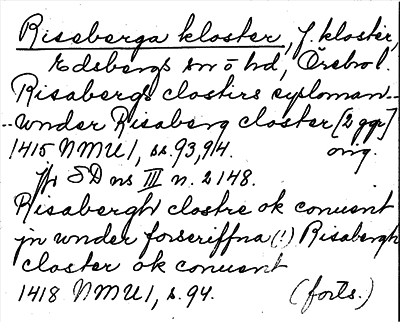 Riseberga kloster, f. kloster,
Edsbergs sn o hd, Örebro l.
Risabergs clostirs sysloman...
...wnder Risaberg closter [2 ggr]
1415 NMU 1, ss. 93, 94. orig.
jfr SD ns III n. 2148.
Risabergh clostre ok conuent
jn wnder forscriffna (!) Risabergh
closter ok conuent
1418 NMU 1, s. 94. (forts.)